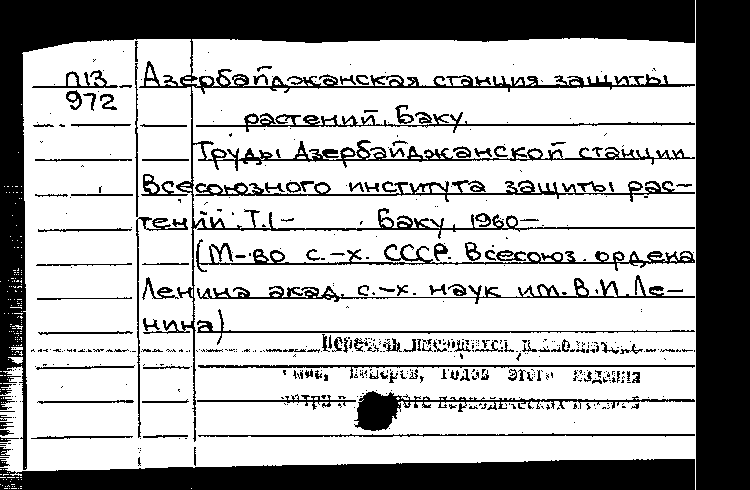 П13
972
Азербайджанская станция защиты
растений. Баку.
Труды Азербайджанской станции
Всесоюзного института защиты рас-
тений. Т.1- . Баку, 1960-
(М-во с.-х. СССР. Всесоюз. ордена
Ленина акад. с.-х. наук им. В.И. Ле-
нина).
Перечень имеющихся в
номеров, годов этого издания
периодических изданий